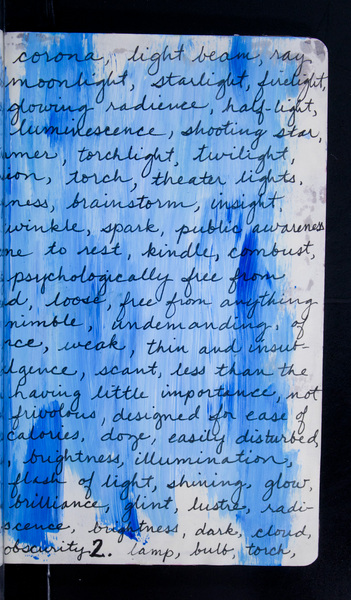 corona, light beam, ray
moonlight, starlight, firelight,
glowing radience, half-light,
luminescence, shooting star,
torchlight, twilight,
torch, theater lights,
brainstorm, insight
twinkle, spark, public awareness
me to rest, kindle, combust,
psychologically free from
loose, free from anything
nimble, undemanding, of
weak, thin and insub-
scant, less than the
having little importance, not
frivolous, designed for ease of
calories, doze, easily disturbed,
, brightness, illumination,
flash of light, shining, glow,
brilliance, glint, lustre, radi-
brightness, dark, cloud,
obscurity 2. lamp, bulb, torch,